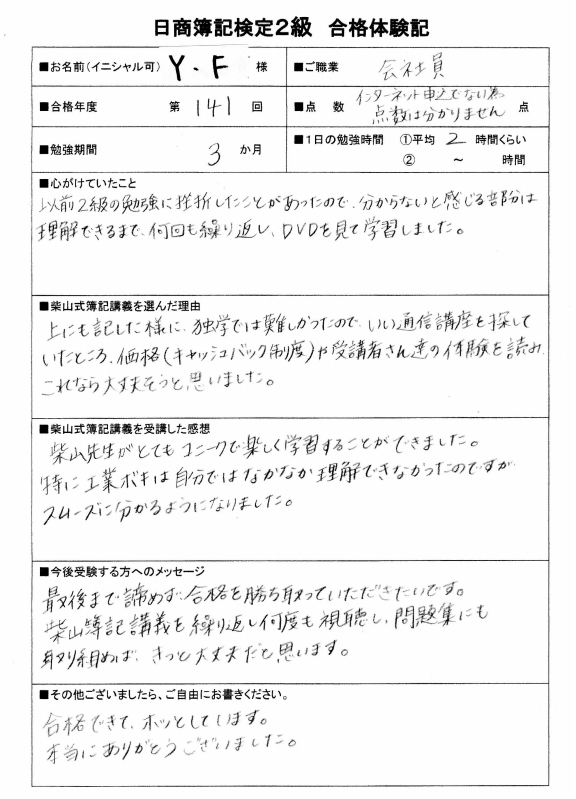 日商簿記検定２級　合格体験記
■お名前（イニシャル可） Y.F 様
■ご職業 会社員
■合格年度 第 141 回
■点　数 インターネット申込でない為 点数は分かりません 点
■勉強期間 3 か月
■１日の勉強時間 ①平均 2 時間くらい
② ～ 時間
■心がけていたこと
以前2級の勉強に挫折したことがあったので、分からないと感じる部分は
理解できるまで、何回も繰り返し、DVDを見て学習しました。
■柴山式簿記講義を選んだ理由
上にも記した様に、独学では難しかったので、いい通信講座を探して
いたところ、価格（キャッシュバック制度）や受講者さん達の体験を読み、
これなら大丈夫そうと思いました。
■柴山式簿記講義を受講した感想
柴山先生がとてもユニークで楽しく学習することができました。
特に工業ボキは自分ではなかなか理解できなかったのですが
スムーズに分かるようになりました。
■今後受験する方へのメッセージ
最後まで諦めず、合格を勝ち取っていただきたいです。
柴山簿記講義を繰り返し何度も視聴し、問題集にも
取り組めば、きっと大丈夫だと思います。
■その他ございましたら、ご自由にお書きください。
合格できて、ホッとしています。
本当にありがとうございました。